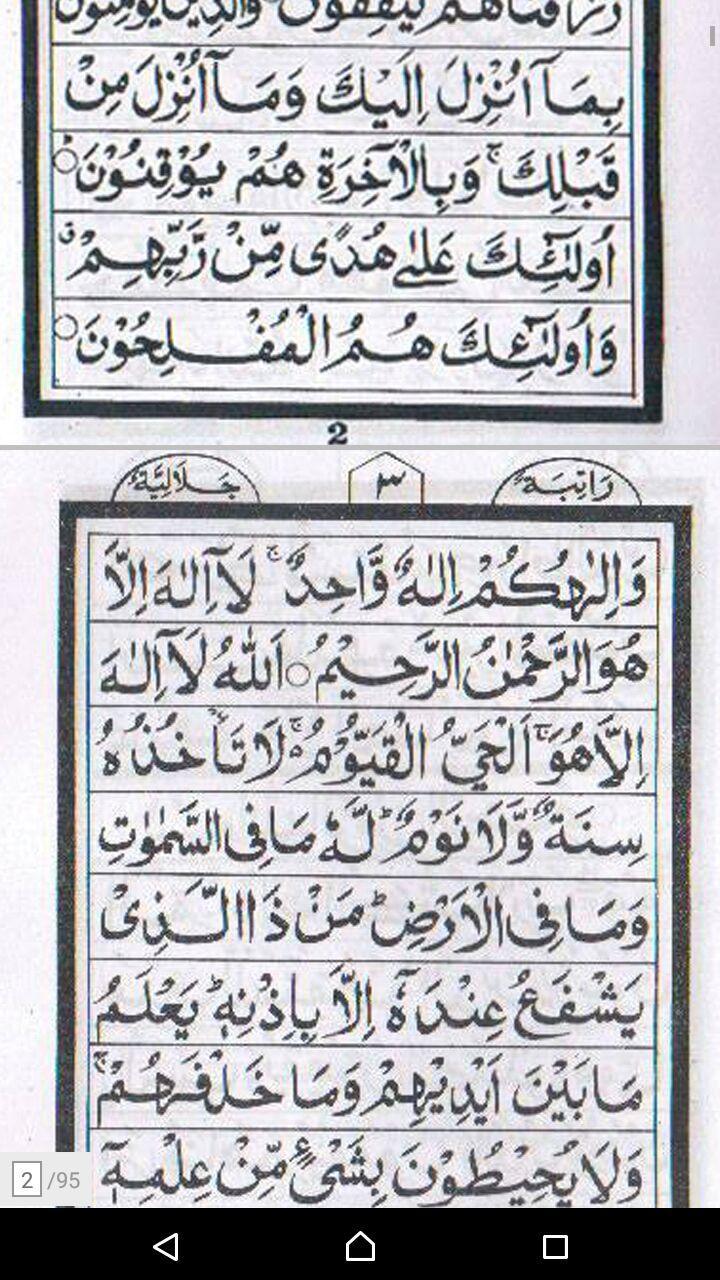 رَزَقْنَاهُمْ يُنْفِقُوْنَ وَالَّذِيْنَ يُؤْمِنُوْنَ
بِمَآ اُنْزِلَ اِلَيْكَ وَمَآ اُنْزِلَ مِنْ
قَبْلِكَ ۚ وَبِالْاٰخِرَةِ هُمْ يُوْقِنُوْنَ ○
اُولٰٓئِكَ عَلٰى هُدًى مِّنْ رَّبِّهِمْ ۙ
وَاُولٰٓئِكَ هُمُ الْمُفْلِحُوْنَ ○
2
رَاتِبَة ٣ جَلَالِيَّة
وَاِلٰهُكُمْ اِلٰهٌ وَّاحِدٌ ۚ لَآ اِلٰهَ اِلَّا
هُوَ الرَّحْمٰنُ الرَّحِيْمُ ○ اَللّٰهُ لَآ اِلٰهَ
اِلَّا هُوَ ۚ اَلْحَيُّ الْقَيُّوْمُ ۚ لَا تَأْخُذُهُ
سِنَةٌ وَّلَا نَوْمٌ ؕ لَهٗ مَا فِى السَّمٰوٰتِ
وَمَا فِى الْاَرْضِ ؕ مَنْ ذَا الَّذِىْ
يَشْفَعُ عِنْدَهٗٓ اِلَّا بِاِذْنِهٖ ؕ يَعْلَمُ
مَا بَيْنَ اَيْدِيْهِمْ وَمَا خَلْفَهُمْ ۚ
وَلَا يُحِيْطُوْنَ بِشَىْءٍ مِّنْ عِلْمِهٖٓ
2 /95